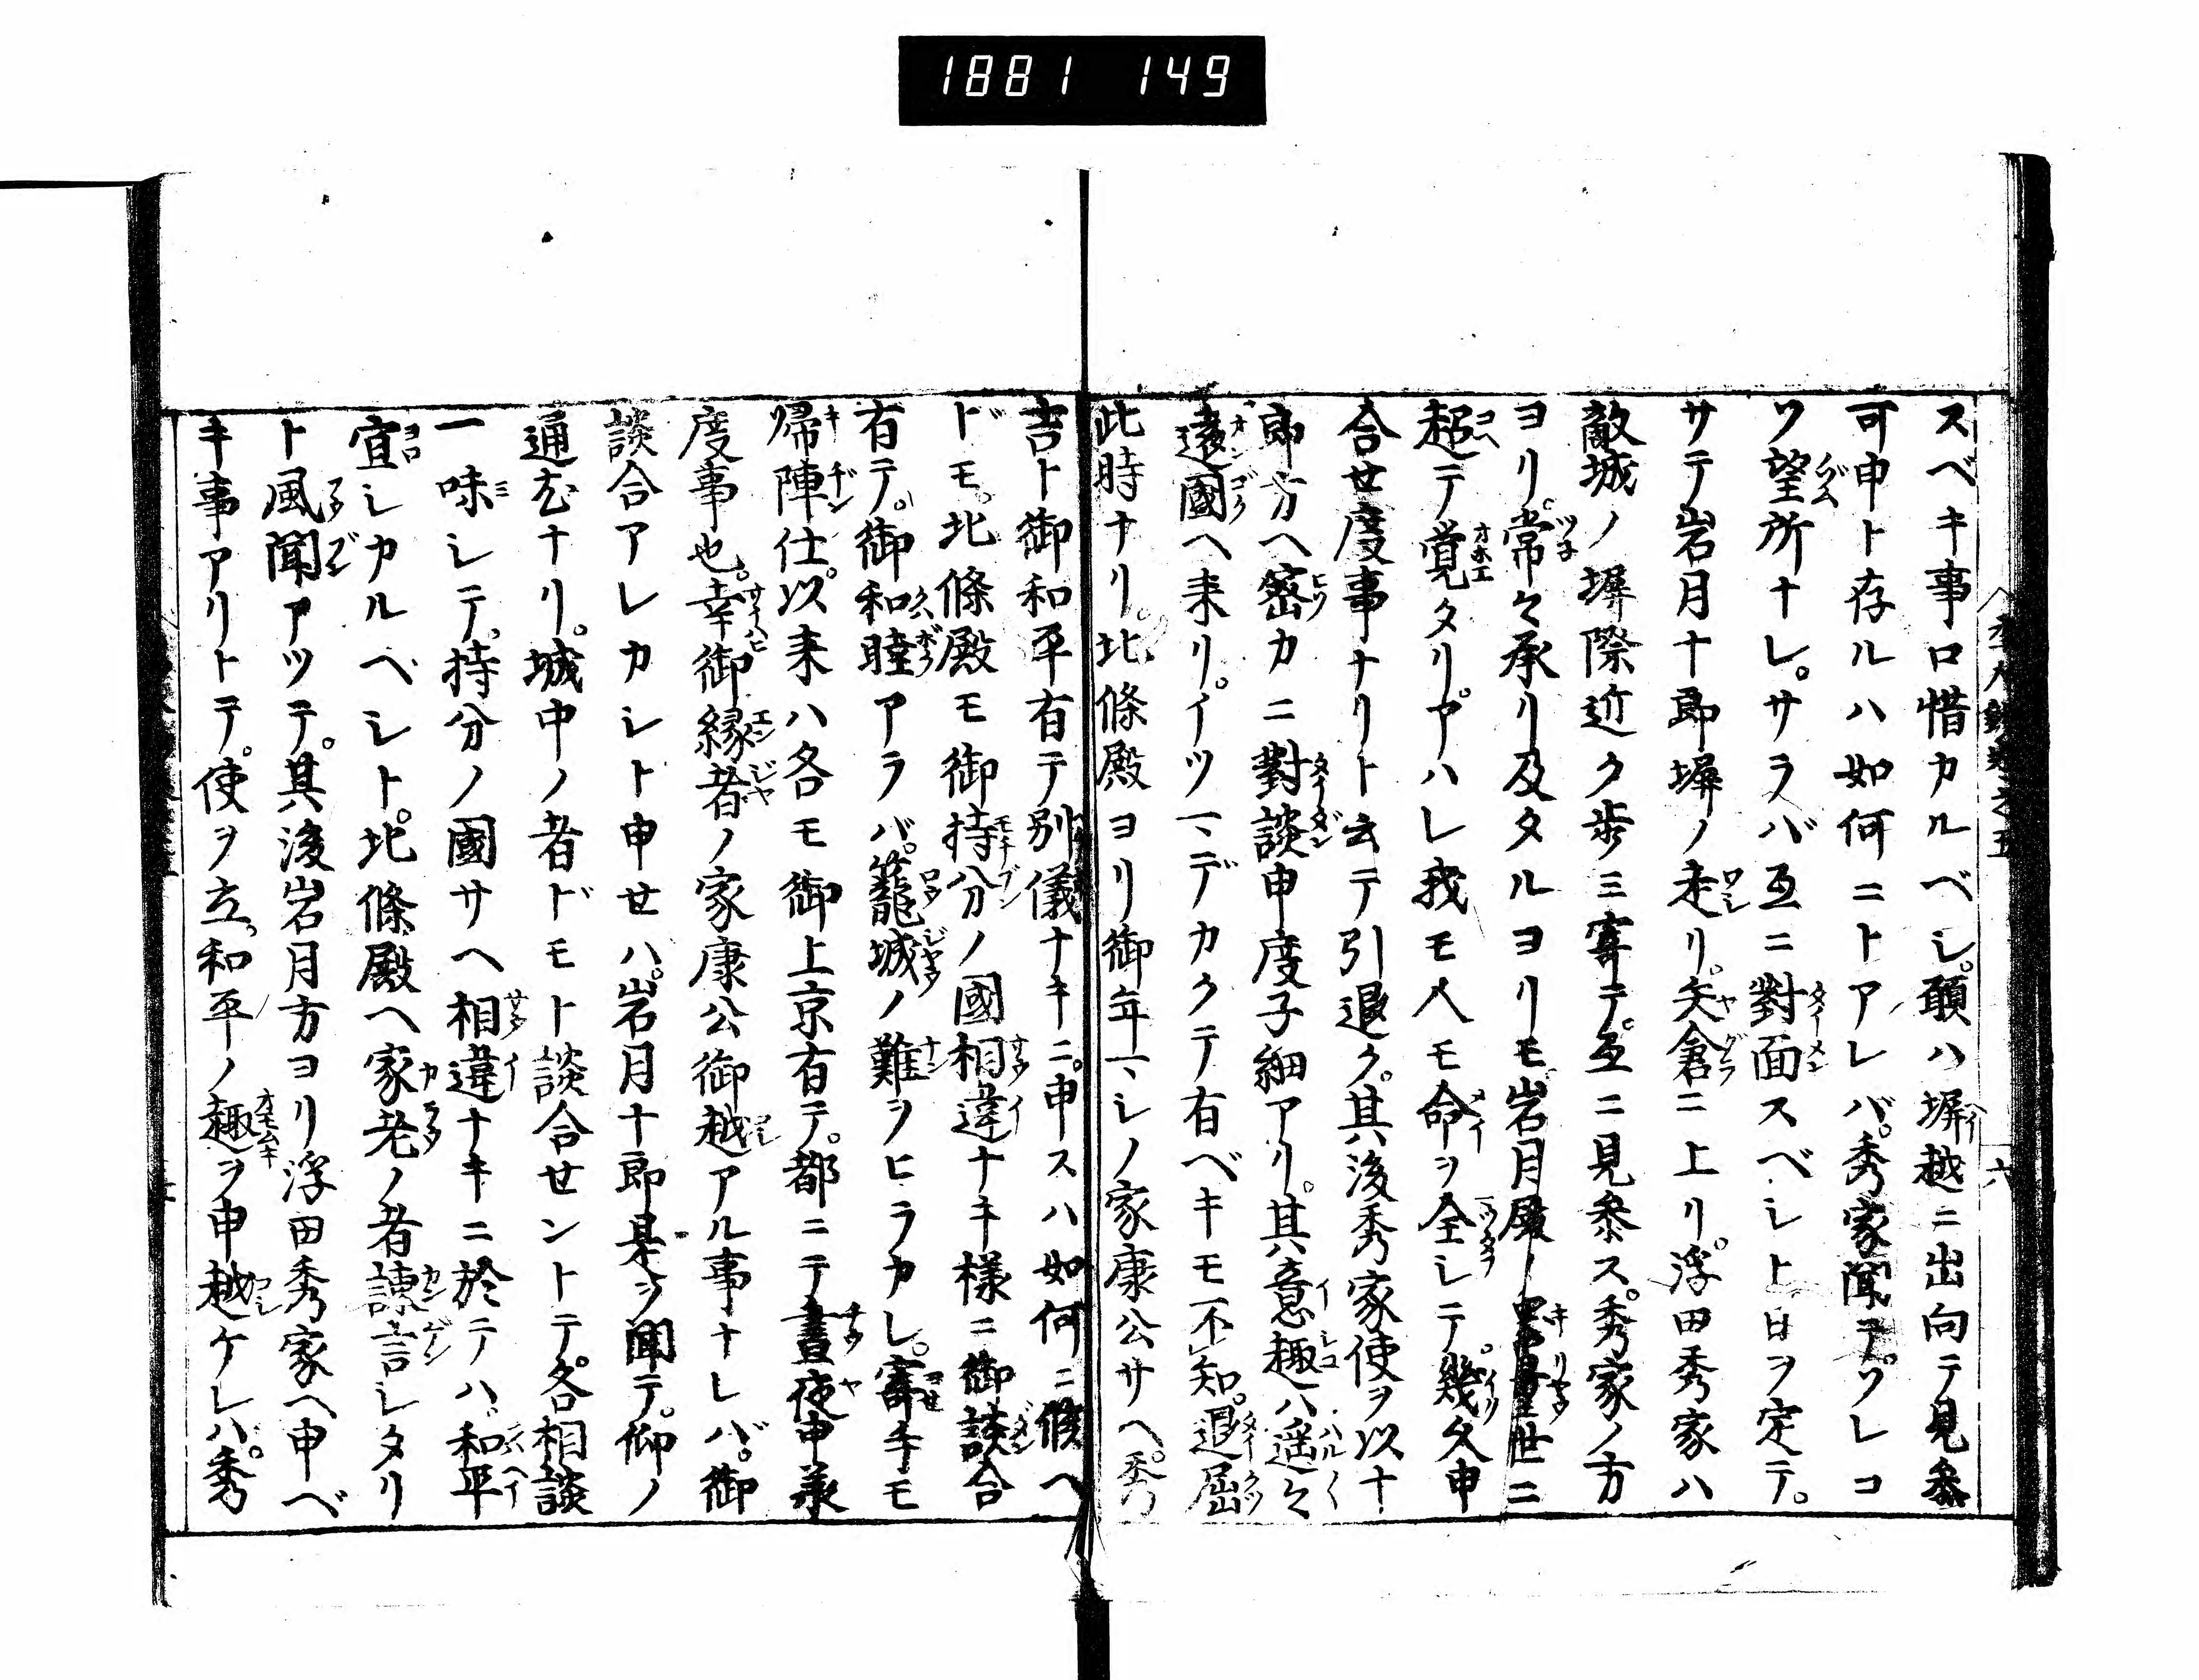 1881 149
スベキ事口惜カルベシ。願ハ塀越ニ出向テ見参
可申ト存ルハ如何ニトアレバ。秀家聞テ。ソレコ
ソ望所ナレ。サラバ互ニ對面スベシト日ヲ定テ。
サテ岩月十郎塀ノ走リ。矢倉ニ上リ。浮田秀家ハ
敵城ノ塀際近ク歩ミ寄テ。互ニ見参ス。秀家ノ方
ヨリ。常々承リ及タルヨリモ。岩月殿ノ器量世ニ
超テ覚タリ。アハレ我モ人モ命ヲ全シテ幾久申
合世度事ナリト云テ引退ク。其後秀家使ヲ以十
郎方ヘ密カニ對談申度子細アリ。其意趣ハ遥々
遠國ヘ来リ。イツマデカクテ有ベキモ不知。退屈
此時ナリ。北條殿ヨリ御年マシノ家康公サヘ。秀
吉ト御和平有テ別儀ナキニ。申スハ如何ニ候ヘ
ドモ。北條殿モ御持分ノ國相違ナキ様ニ御談合
有テ。御和睦アラバ。籠城ノ難ヲヒラカレ。寄手モ
帰陣仕。以来ハ各モ御上京有テ。都ニテ晝夜申承
度事也。幸御縁者ノ家康公御越アル事ナレバ。御
談合アレカシト申セハ。岩月十郎是ヲ聞テ。仰ノ
通尤ナリ。城中ノ者ドモト談合セントテ。各相談
一味シテ。持分ノ國サヘ相違ナキニ於テハ。和平
宜シカルベシト。北條殿ヘ家老ノ者諫言シタリ
ト風聞アツテ。其後岩月方ヨリ浮田秀家ヘ申ベ
キ事アリトテ。使ヲ立。和平ノ趣ヲ申越ケレハ。秀